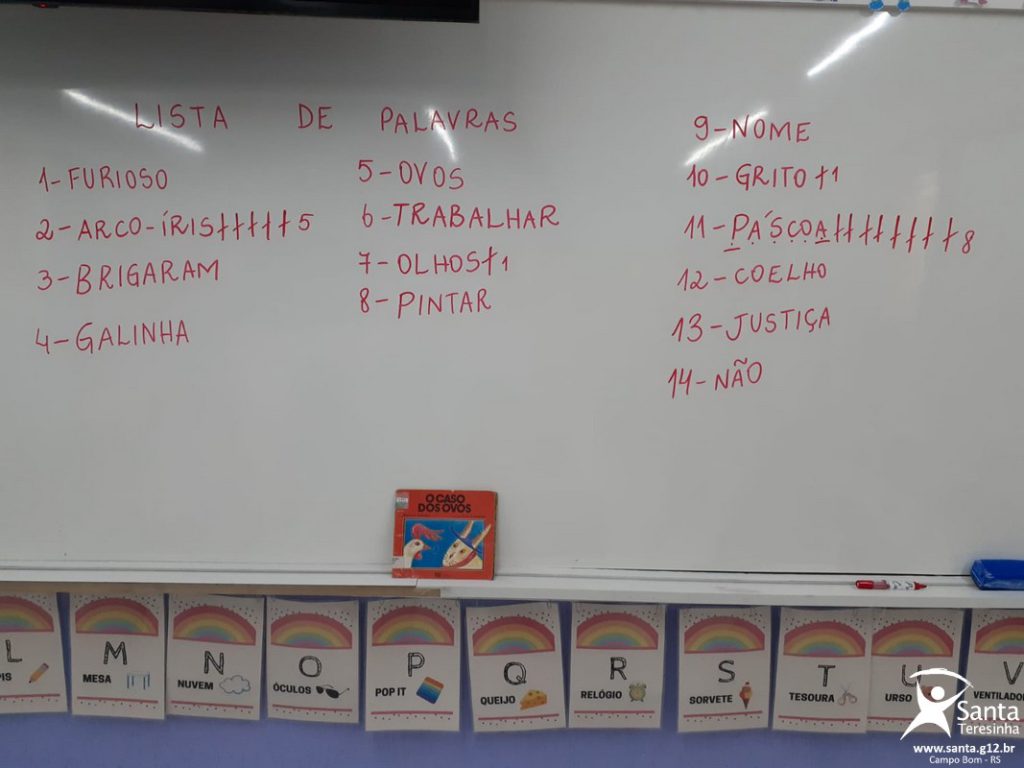 LISTA DE PALAVRAS
1-FURIOSO
2-ARCO-ÍRIS 5
3-BRIGARAM
4-GALINHA
5-OVOS
6-TRABALHAR
7-OLHOS 1
8-PINTAR
9-NOME
10-GRITO 1
11-PÁSCOA 8
12-COELHO
13-JUSTIÇA
14-NÃO
O CASO
DOS OVOS
L
PIS
M
MESA
N
NUVEM
O
ÓCULOS
P
POP IT
Q
QUEIJO
R
RELÓGIO
S
SORVETE
T
TESOURA
U
URSO
V
VENTILADOR
Santa
Teresinha
www.santa.g12.br
Campo Bom - RS